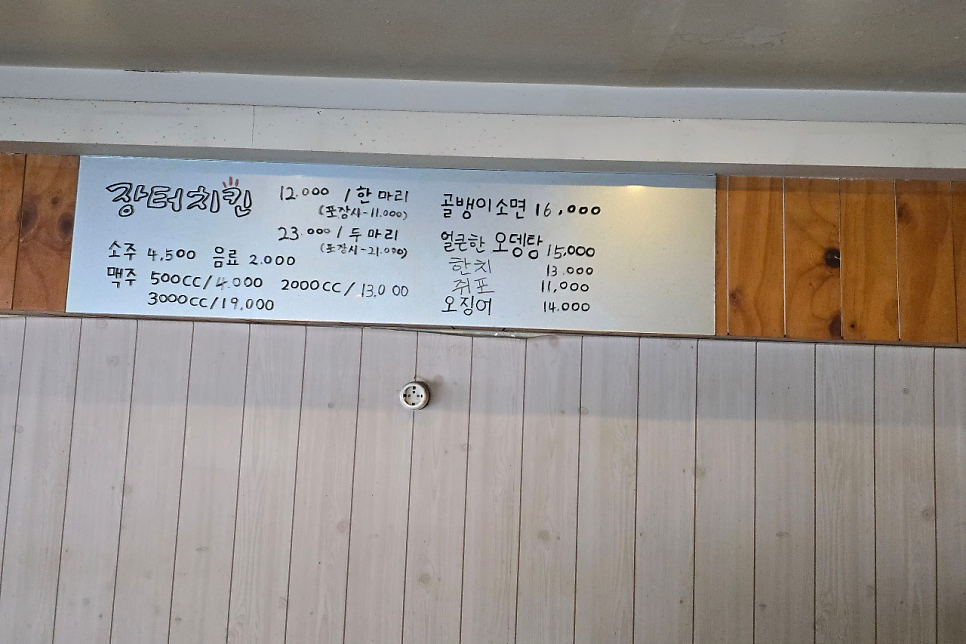 장터치킨 12.000 / 한 마리
(포장시-11.000)
23.000 / 두 마리
(포장시-21.000)
소주 4.500 음료 2.000
맥주 500CC/4.000 2000CC/13.000
3000CC/19,000
골뱅이소면 16,000
얼큰한 오뎅탕 15,000
한치 13.000
쥐포 11,000
오징어 14.000